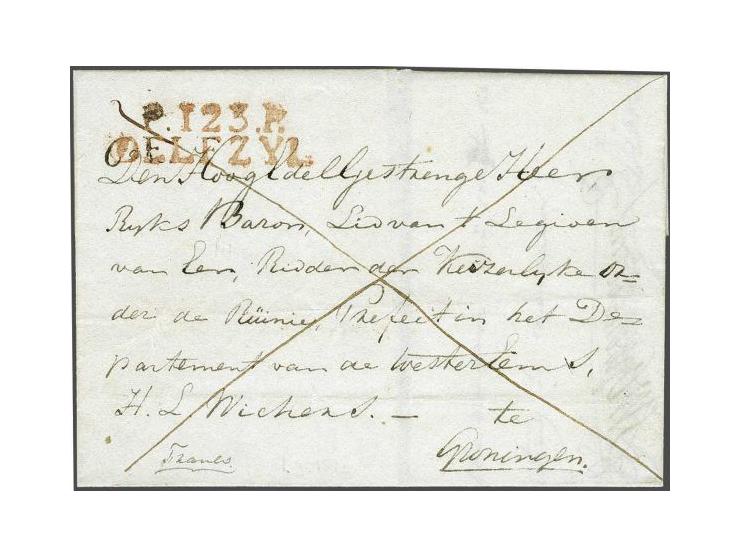 P.123.P.
DELFZYL.
Den HoogEdelGestrenge Heer
Ryks Baron, Lid van t Legioen
van Eer, Ridder der Keizerlyke or=
der de Rüinie, Prefect in het De=
partement van de Wester Eems,
H. L Wichers. — te
Groningen.
Franco